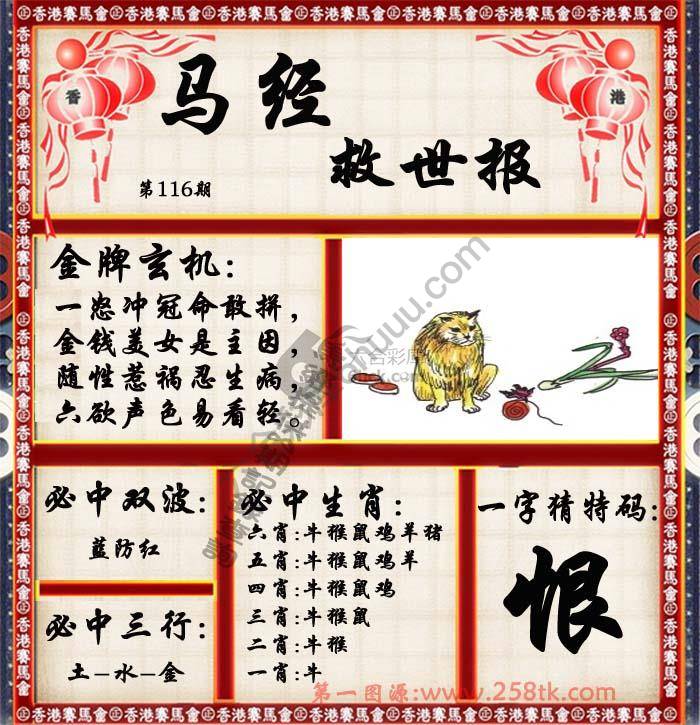 香港賽馬會
香 港
马经
救世报
第116期
金牌玄机：
一怒冲冠命敢拼，
金钱美女是主因，
随性惹祸忍生病，
六欲声色易看轻。
必中双波：
蓝防红
必中三行：
土-水-金
必中生肖：
六肖:牛猴鼠鸡羊猪
五肖:牛猴鼠鸡羊
四肖:牛猴鼠鸡
三肖:牛猴鼠
二肖:牛猴
一肖:牛
一字猜特码:
恨
第一图源:www.258tk.com